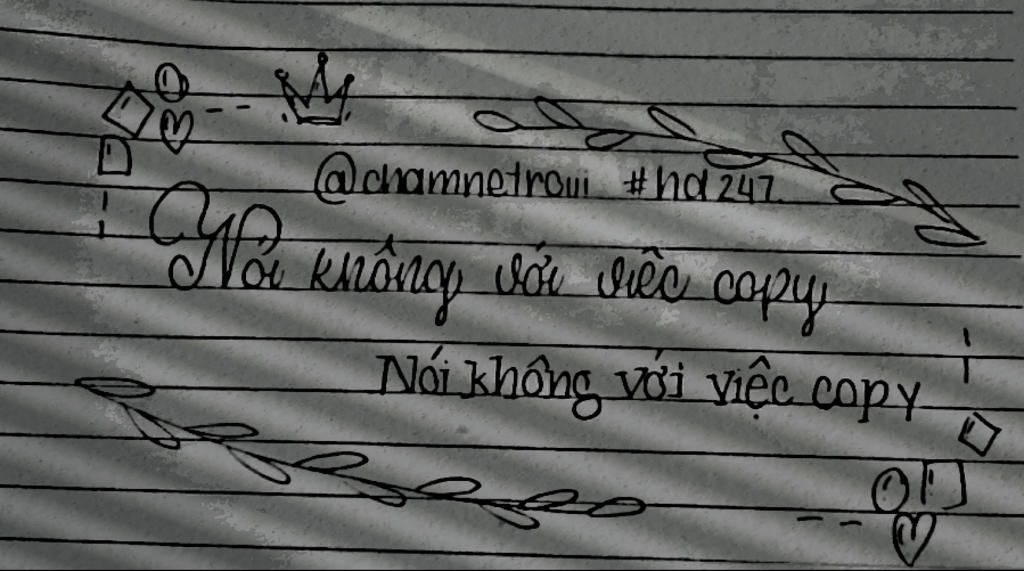 @chamnetroui #hd247
Nói không với việc copy
Nói không với việc copy